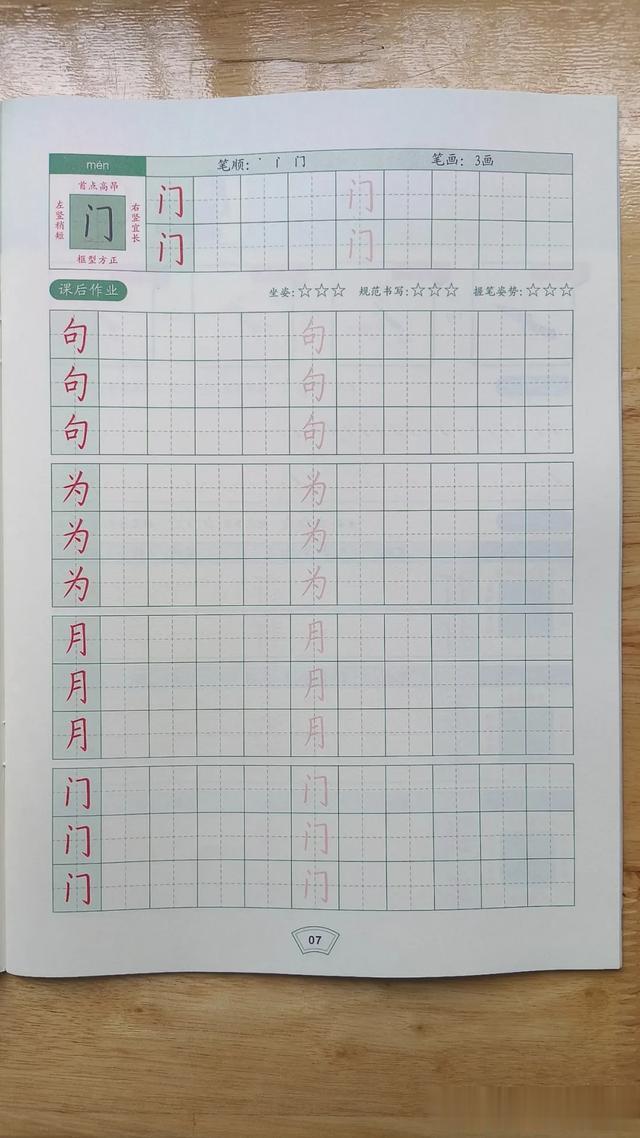 mén 笔顺: 丶 丨 门 笔画: 3画
首点高昂
左竖稍短 门 右竖宜长
框型方正
门 门
门 门
课后作业 坐姿:☆☆☆ 规范书写:☆☆☆ 握笔姿势:☆☆☆
句 句
句 句
句 句
为 为
为 为
为 为
月 月
月 月
月 月
门 门
门 门
门 门
07